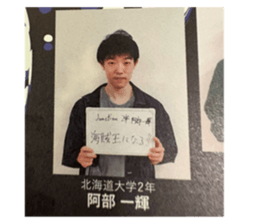 海賊王になる
北海道大学2年
阿部 一輝